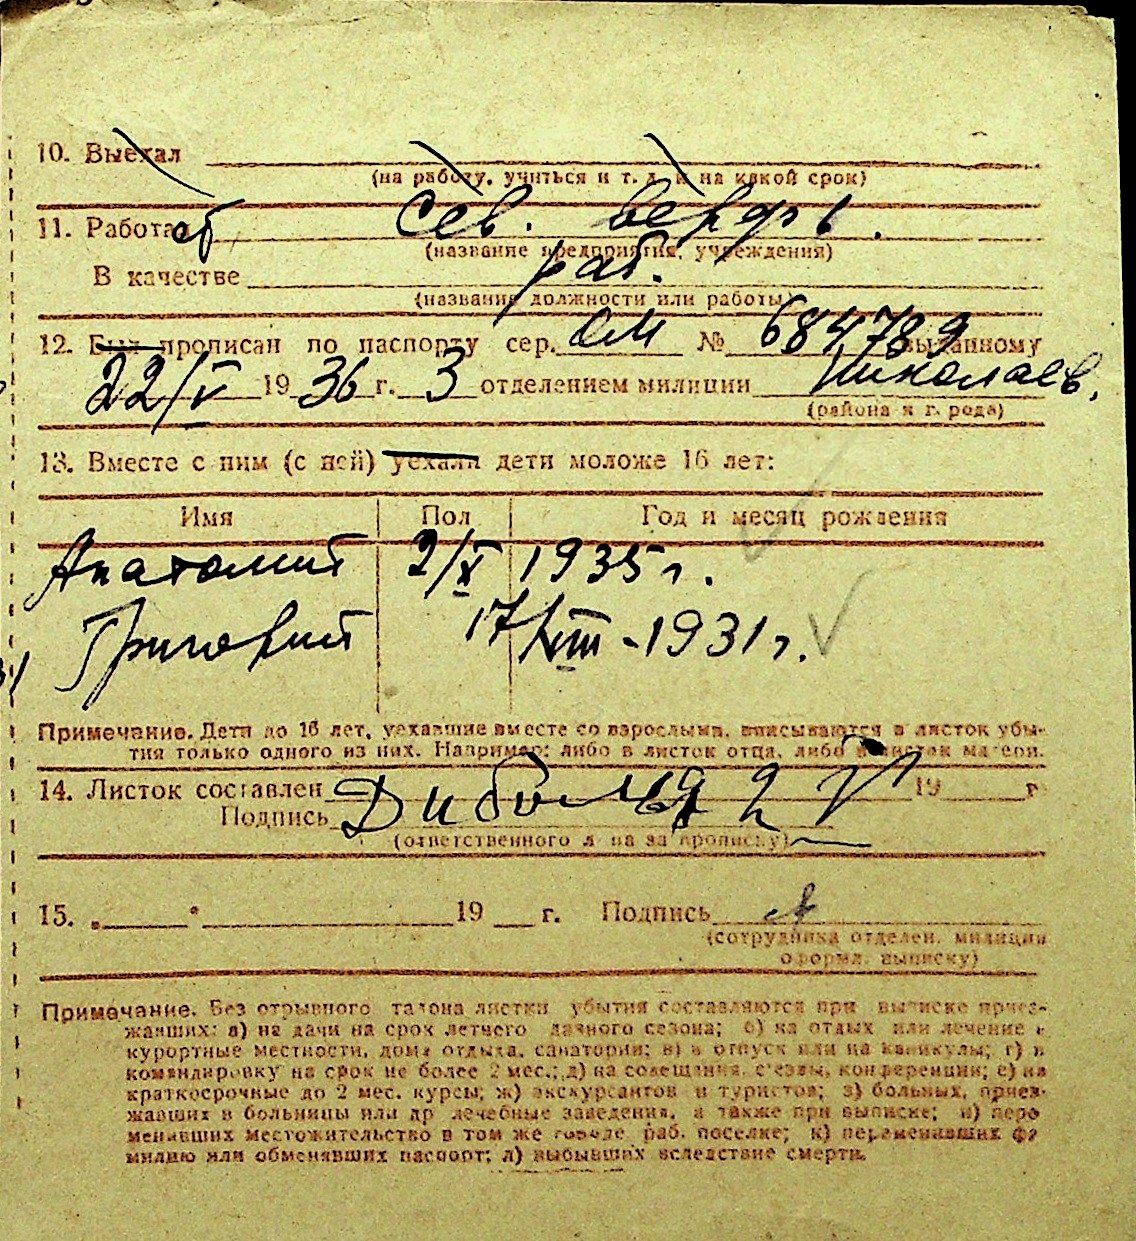 10. Выехал
(на работу, учиться и т. д. и на какой срок)
11. Работает Сев. верфь.
(название предприятия, учреждения)
В качестве раб.
(название должности или работы)
12. Был прописан по паспорту сер. ОМ № 684789 выданному
22/V 1936 г. 3 отделением милиции Николаев.
(района и города)
13. Вместе с ним (с ней) уехали дети моложе 16 лет:
Имя Пол Год и месяц рождения
Анатолий 2/X 1935 г.
Григорий 17/VIII - 1931 г.
Примечание. Дети до 16 лет, уехавшие вместе со взрослыми, вписываются в листок убы-
тия только одного из них. Например: либо в листок отца, либо в листок матери.
14. Листок составлен 2 V 19 г
Подпись
(ответственного лица за прописку)
15. „ “ 19 г. Подпись
(сотрудника отделен. милиции
оформл. выписку)
Примечание. Без отрывного талона листки убытия составляются при выписке приез-
жавших: а) на дачи на срок летнего дачного сезона; б) на отдых или лечение в
курортные местности, дома отдыха, санатории; в) в отпуск или на каникулы; г) в
командировку на срок не более 2 мес.; д) на совещания, съезды, конференции; е) на
краткосрочные до 2 мес. курсы; ж) экскурсантов и туристов; з) больных, приез-
жавших в больницы или др лечебные заведения, а также при выписке; и) пере
менивших местожительство в том же городе, раб. поселке; к) переменивших фа
милию или обменявших паспорт; л) выбывших вследствие смерти.